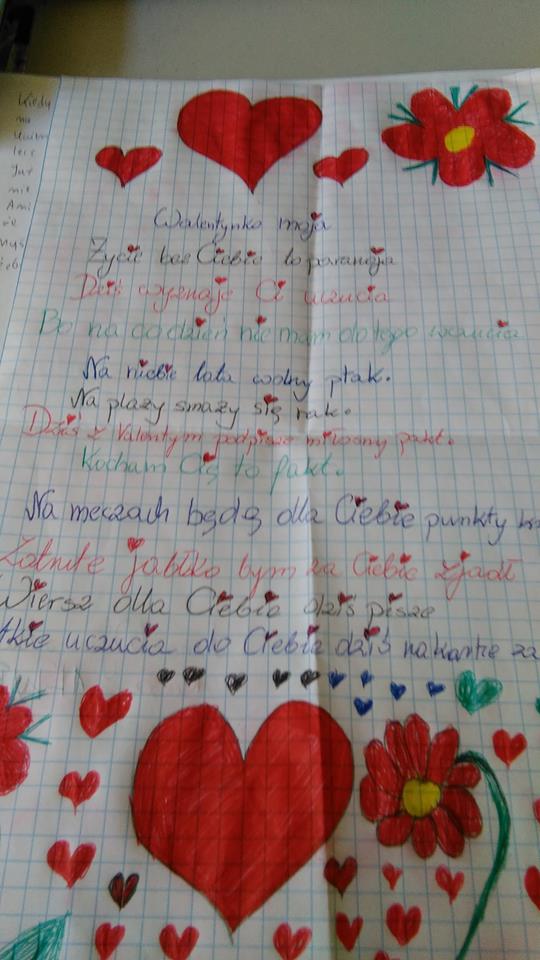 Walentynko moja
Życie bez Ciebie to paranoja
Dziś wyznaje Ci uczucia
Bo na codzień nie mam do tego
Na niebie lata wolny ptak.
Na plaży smaży się rak.
Dziś z Valentym podpisze miłosny pakt.
Kocham Cię to fakt.
Na meczach będę dla Ciebie punkty
jabłko bym za Ciebie zjadł
Wiersz dla Ciebie dziś pisze
uczucia do Ciebie dziś na kartce